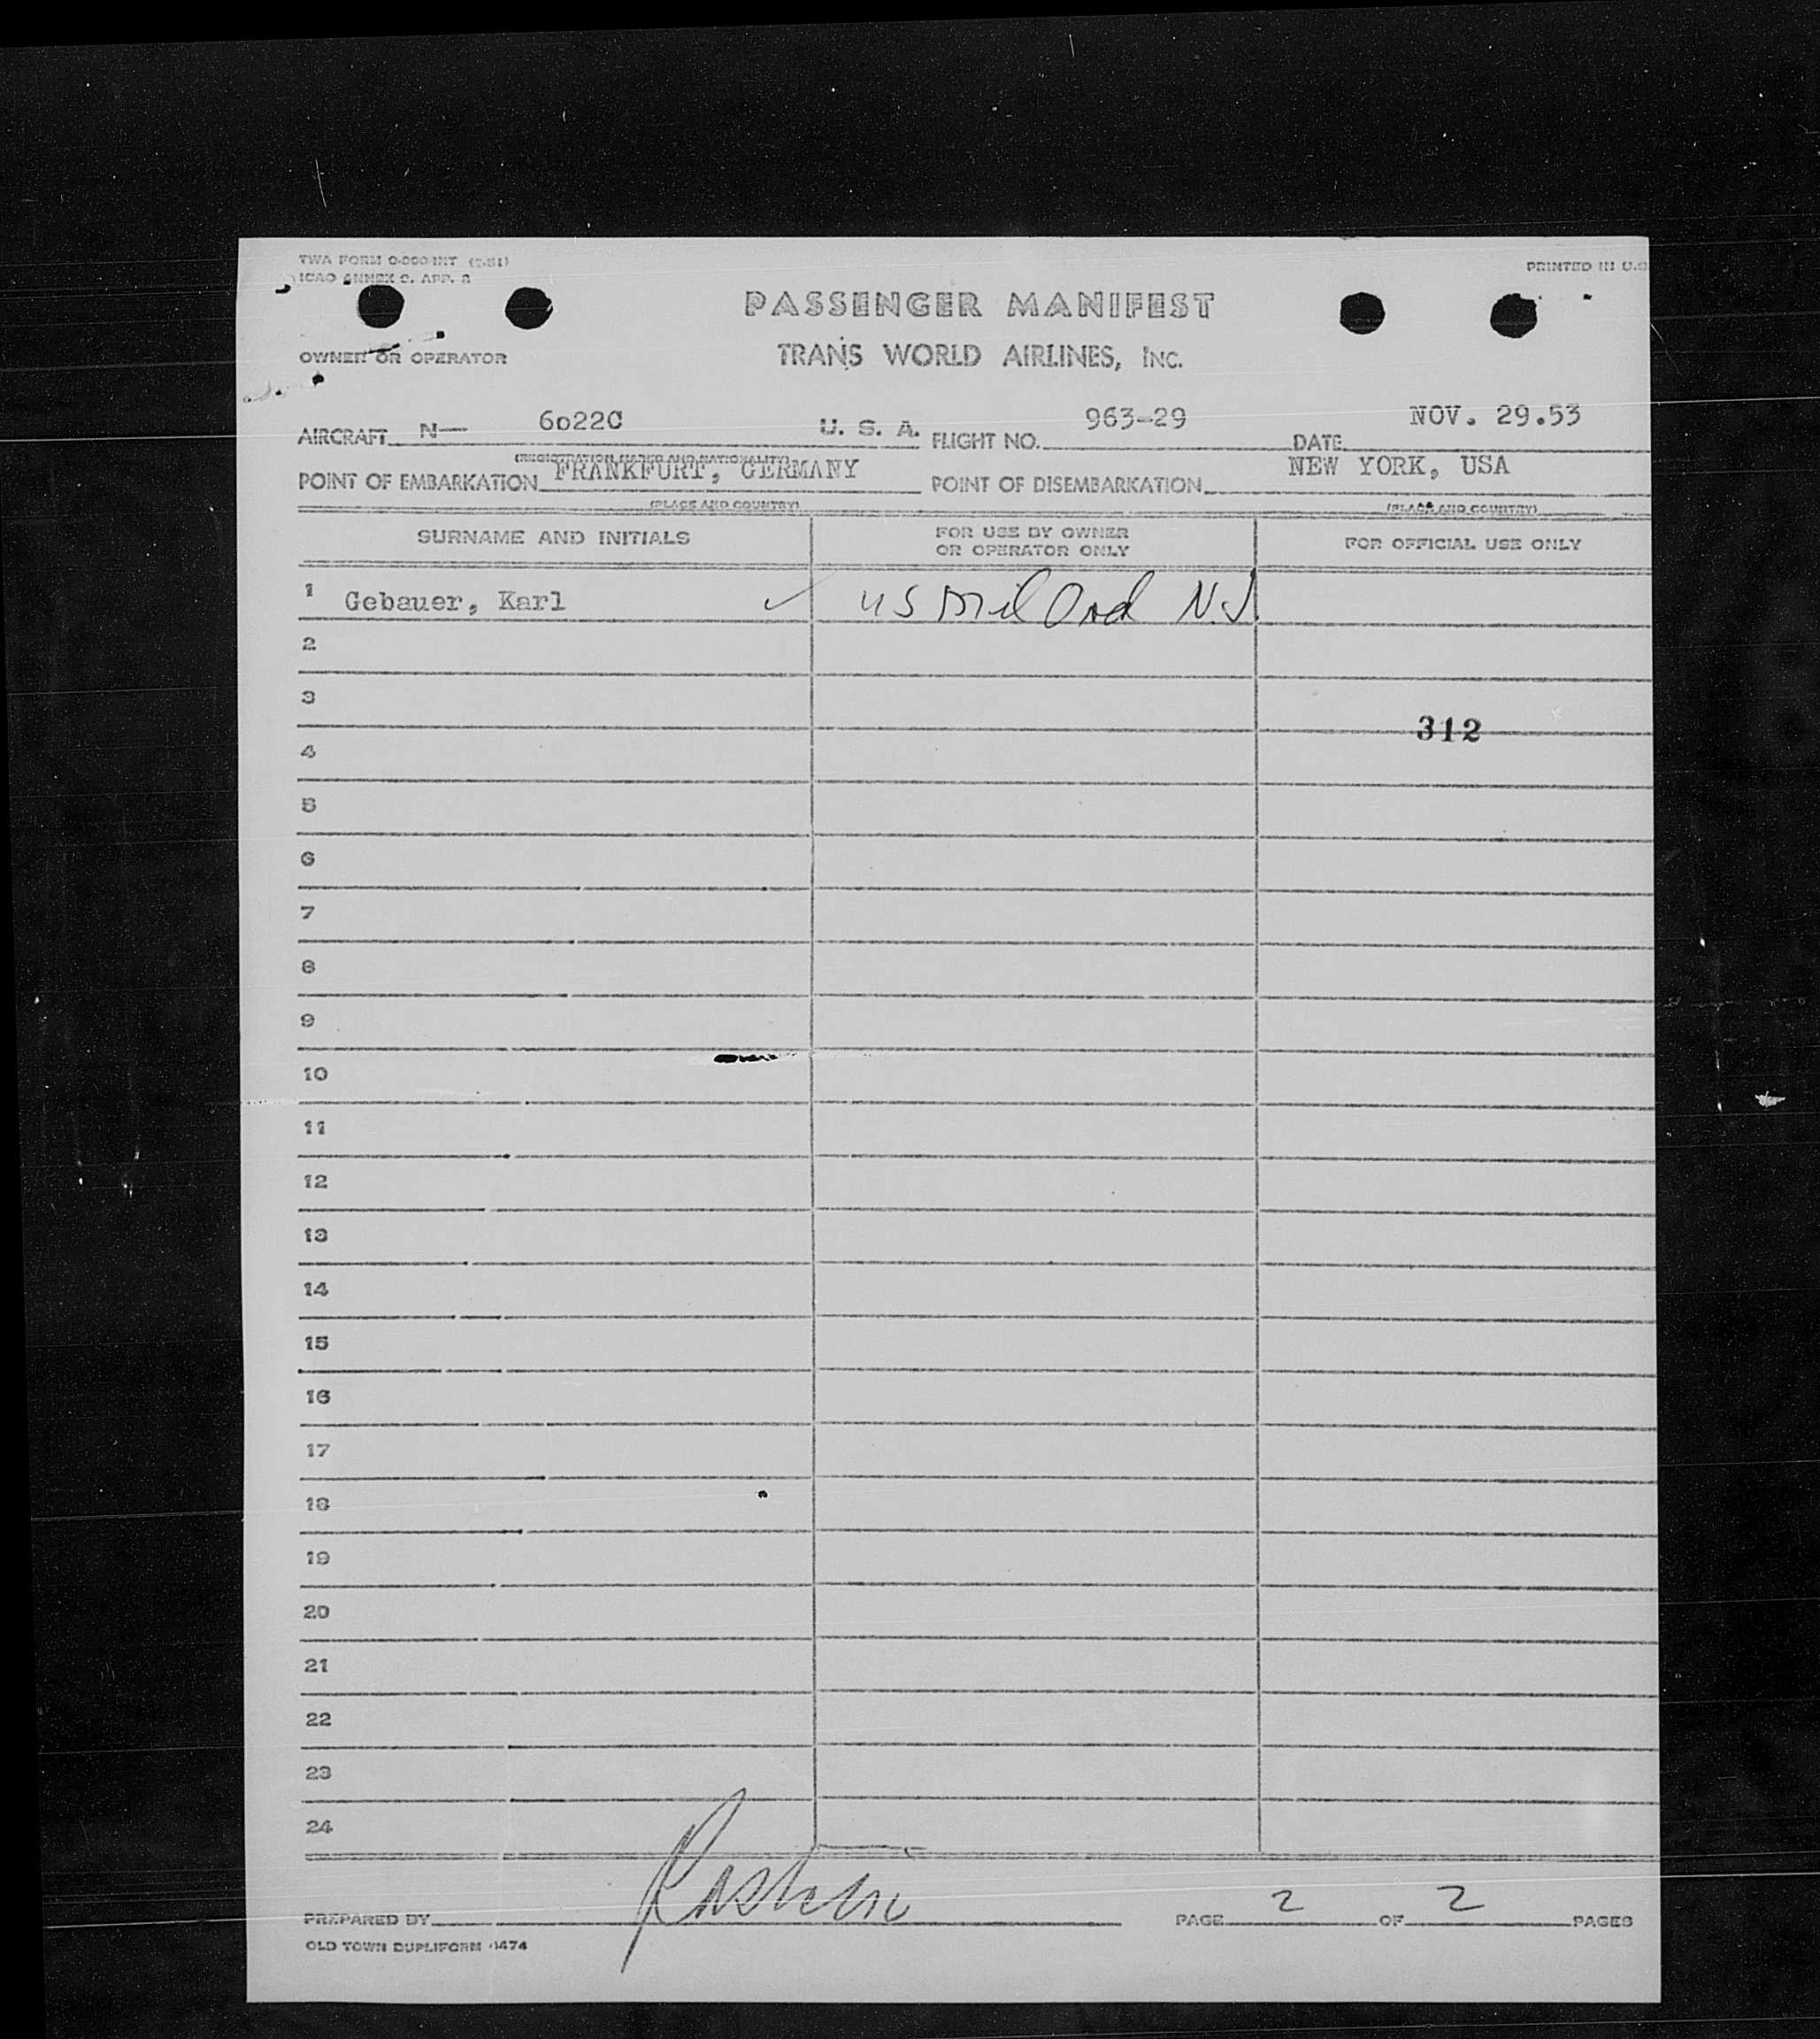 TWA FORM O-800-INT (2-51)
ICAO ANNEX 9. APP. 2
PRINTED IN U.S.
PASSENGER MANIFEST
OWNER OR OPERATOR
TRANS WORLD AIRLINES, INC.
AIRCRAFT N— 6o22C U. S. A. FLIGHT NO. 963-29 DATE NOV. 29.53
(REGISTRATION MARKS AND NATIONALITY)
POINT OF EMBARKATION FRANKFURT, GERMANY POINT OF DISEMBARKATION NEW YORK, USA
(PLACE AND COUNTRY) (PLACE AND COUNTRY)
SURNAME AND INITIALS FOR USE BY OWNER OR OPERATOR ONLY FOR OFFICIAL USE ONLY
1 Gebauer, Karl ✓ US Mil Ord N.J.
2
3
312
4
5
6
7
8
9
10
11
12
13
14
15
16
17
18
19
20
21
22
23
24
PREPARED BY PAGE 2 OF 2 PAGES
OLD TOWN DUPLIFORM 0474